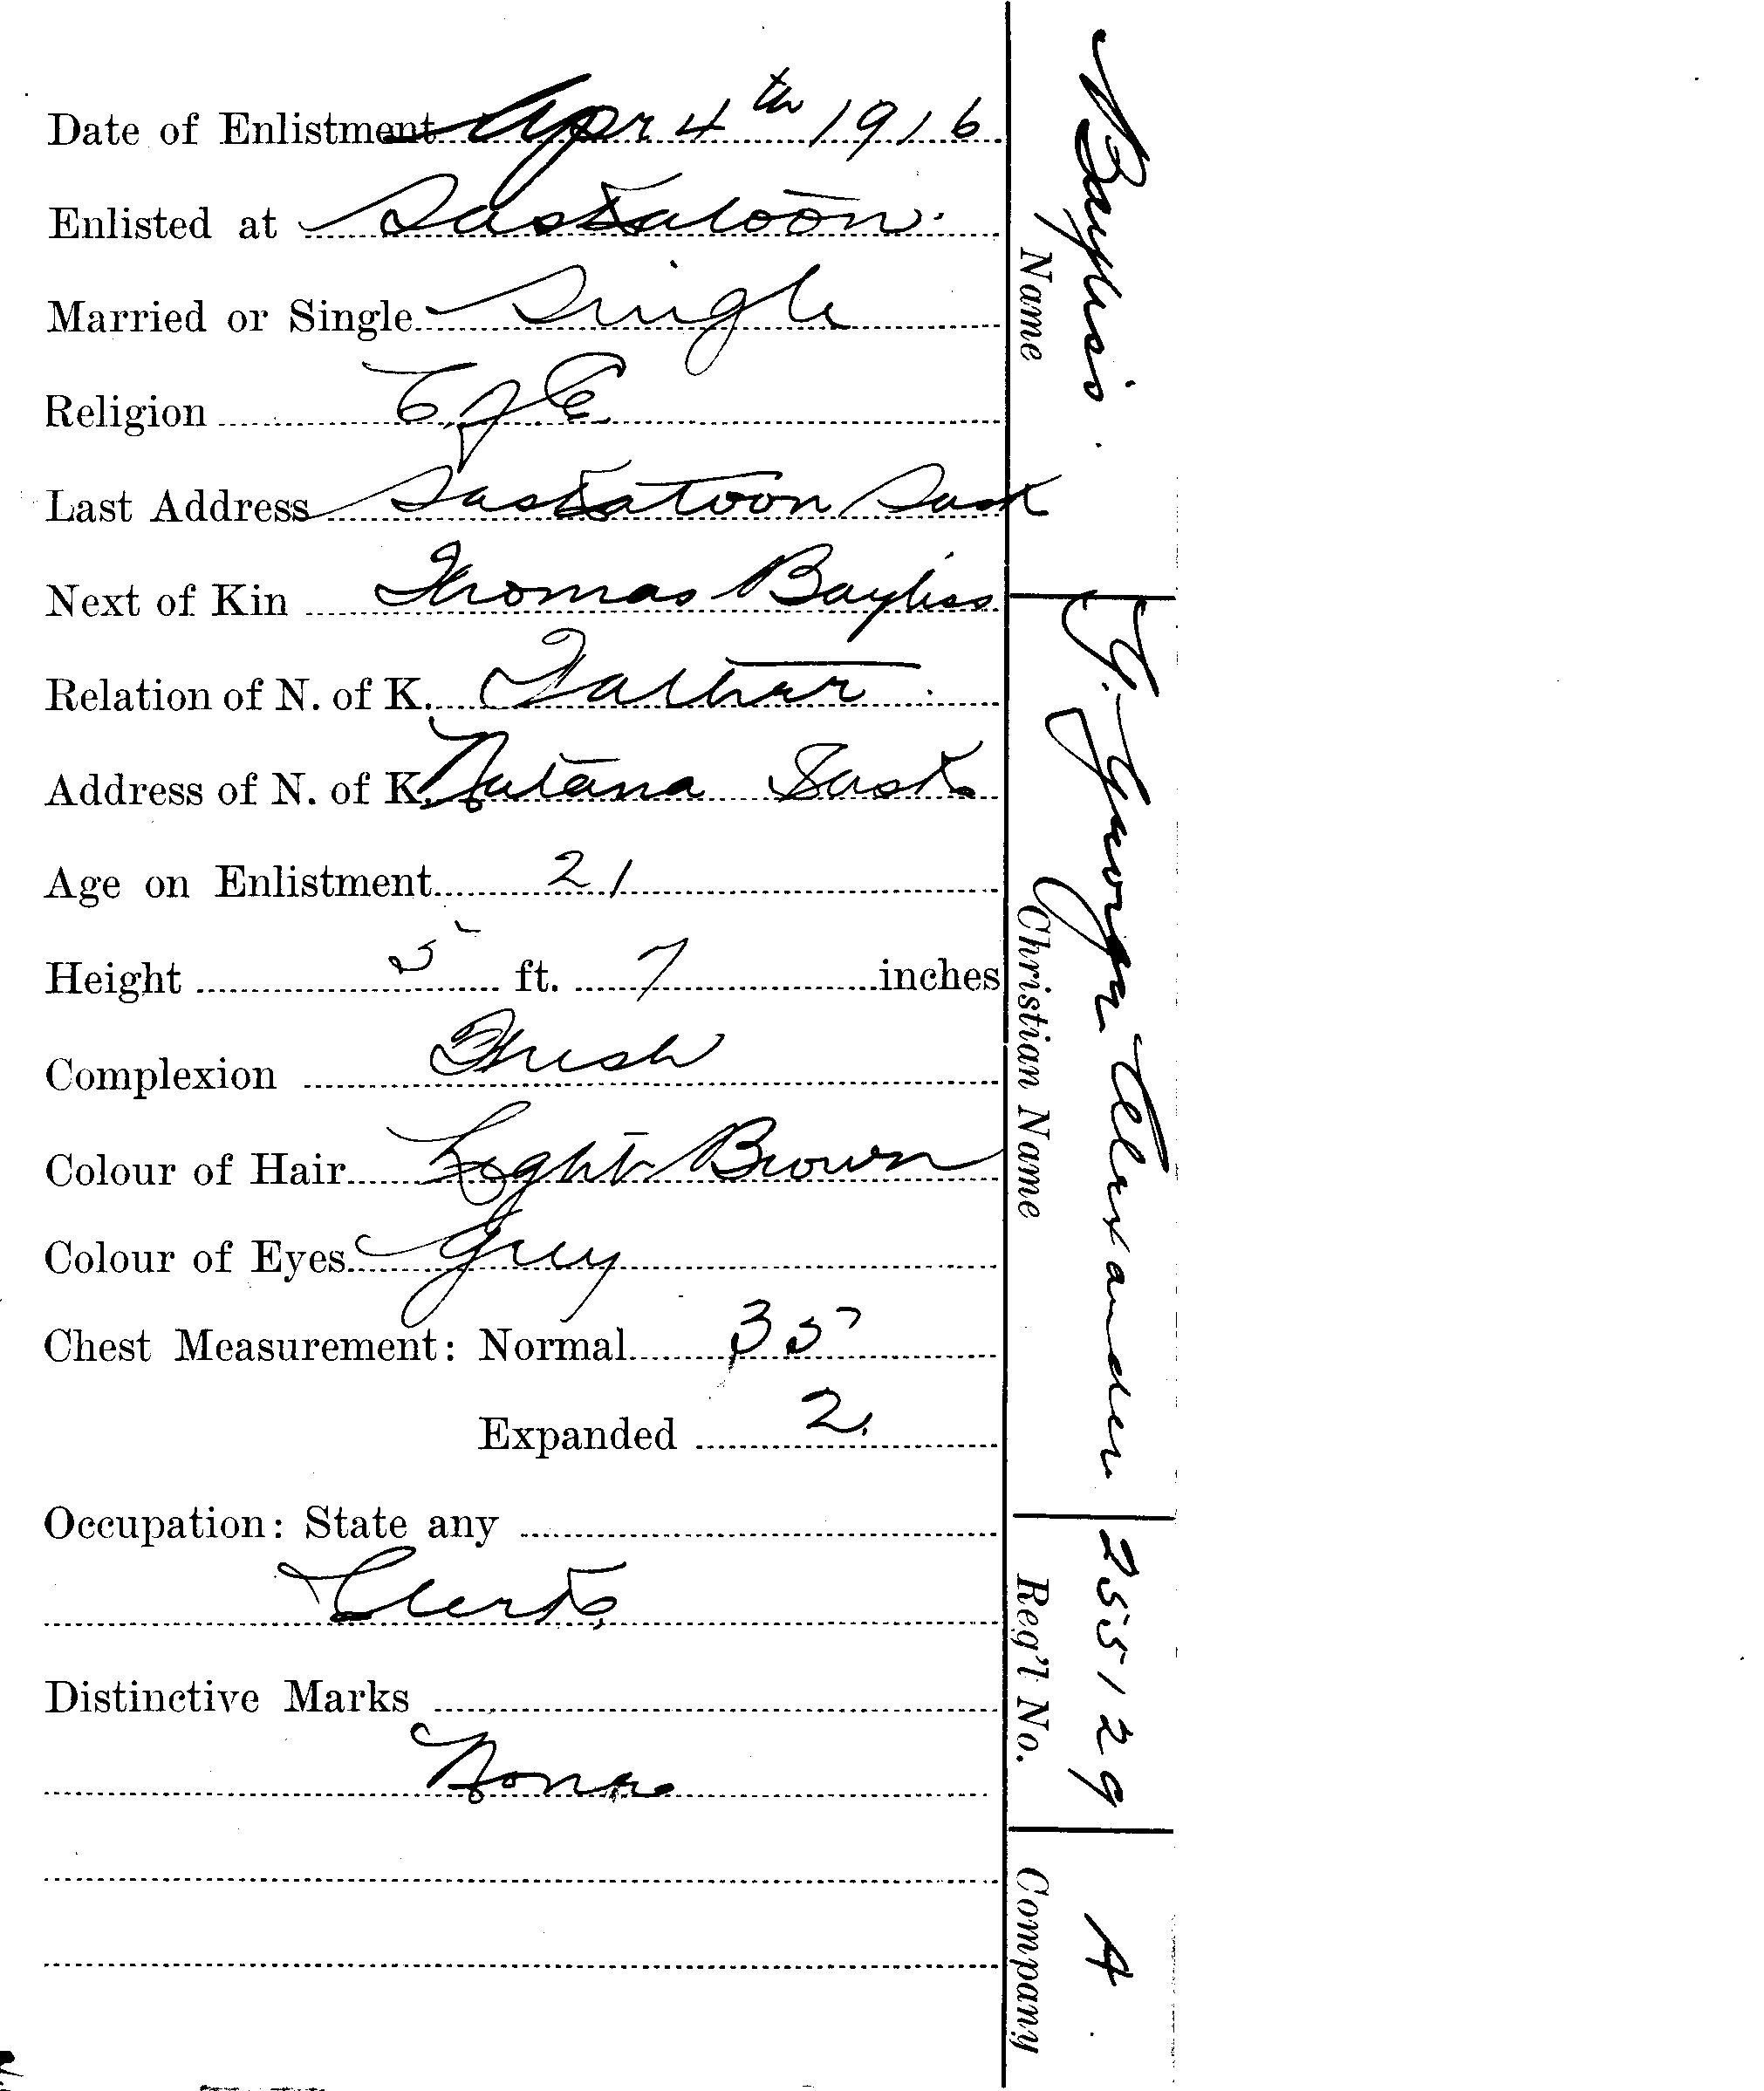 Date of Enlistment Apr 4th 1916
Enlisted at Saskatoon.
Married or Single Single
Religion C of E.
Last Address Saskatoon Sask
Next of Kin Thomas Bayliss
Relation of N. of K. Father
Address of N. of K. Nutana Sask
Age on Enlistment 21
Height 5 ft. 7 inches
Complexion Fresh
Colour of Hair Light Brown
Colour of Eyes Grey
Chest Measurement: Normal 35
Expanded 2
Occupation: State any
Clerk
Distinctive Marks
None
Bayliss
Name
George Alexander
Christian Name
255129
Reg'l No.
A
Company